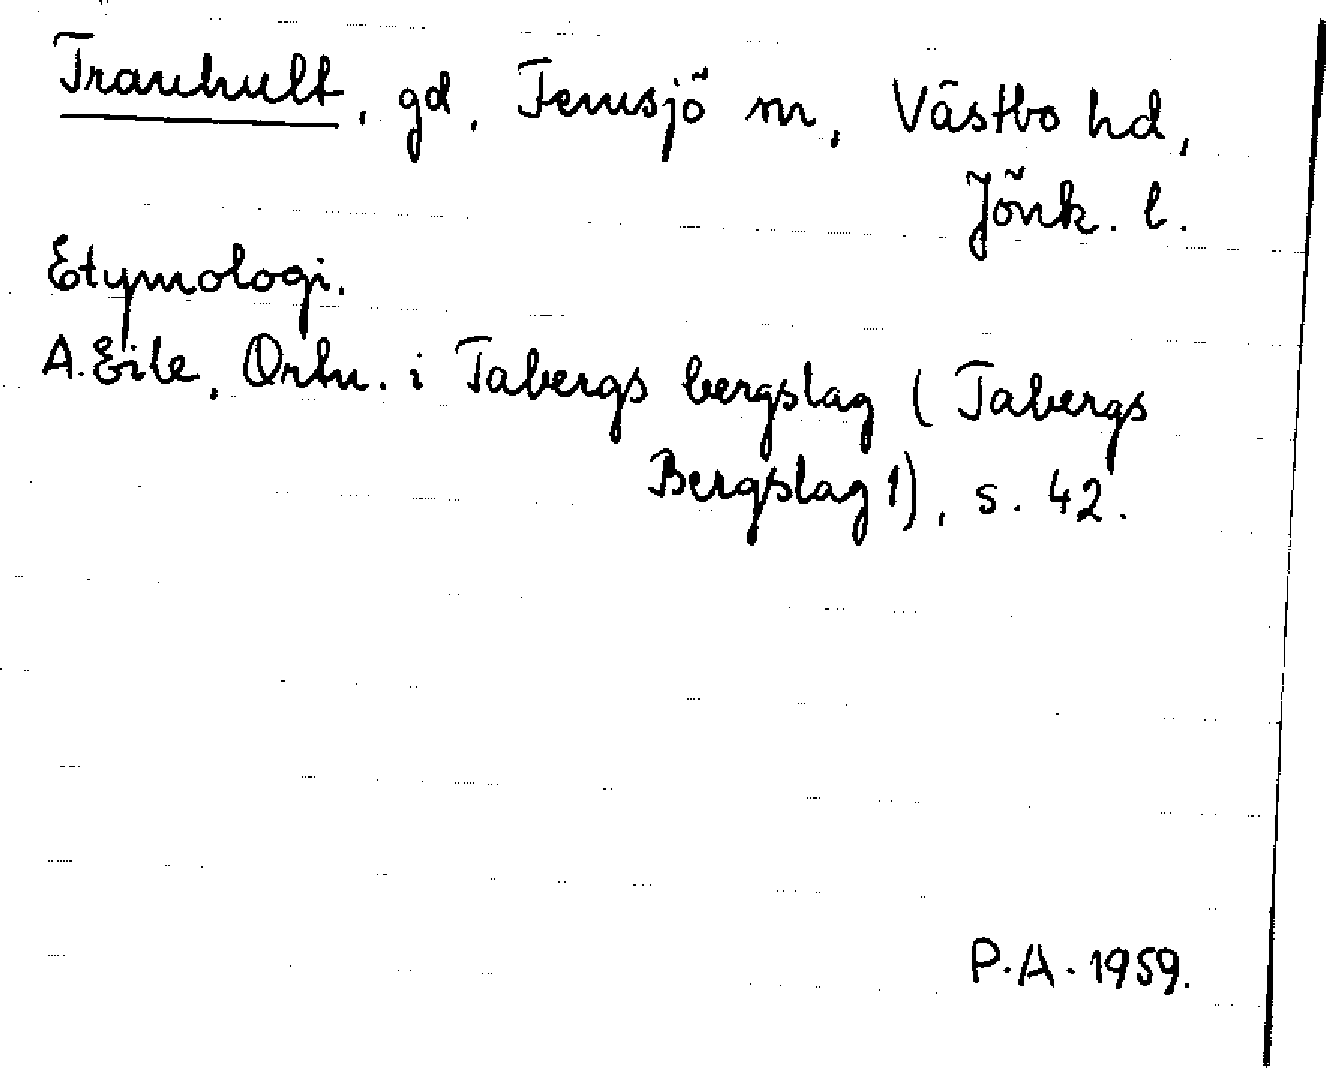 Tranhult, gd, Femsjö sn, Västbo hd,
Jönk. l.
Etymologi.
A. Eile, Ortn. i Tabergs bergslag (Tabergs
Bergslag 1), s. 42.
P.A. 1959.